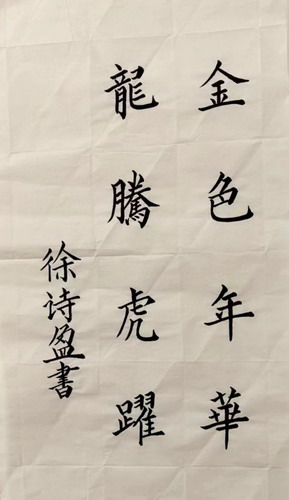 金色年華
龍騰虎躍
徐诗盈書